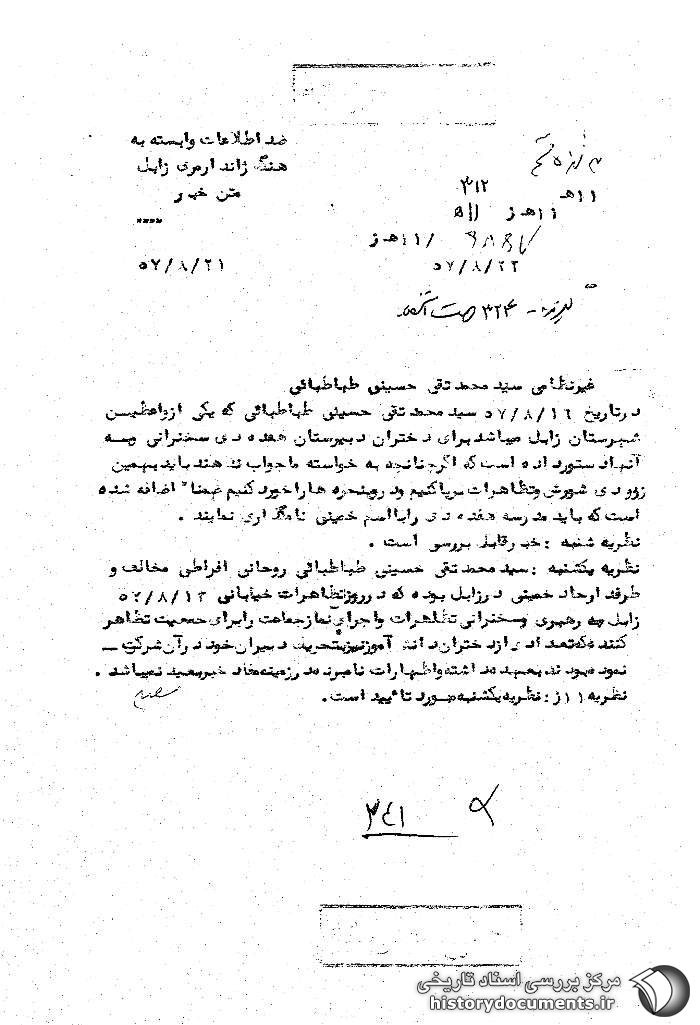 ضد اطلاعات وابسته به
هنگ ژاندارمری زابل
متن خبر
۵۷/۸/۲۱
۳۱۲
۱۱هـ
۱۱هـ ز
/۱۱هـ ز
۵۷/۸/۲۲
۳۲۴
غیرنظامی سید محمد تقی حسینی طباطبائی
در تاریخ ۵۷/۸/۱۶ سید محمد تقی حسینی طباطبائی که یکی از واعظین
شهرستان زابل میباشد برای دختران دبیرستان هفده دی سخنرانی وبه
آنها دستور داده است که اگر چنانچه به خواسته ما جواب ندهند باید بهمین
زودی شورش وتظاهرات برپا کنیم ودروپنجره ها را خورد کنیم ضمنا" اضافه شده
است که باید مدرسه هفده دی را بااسم خمینی نامگذاری نمایند .
نظریه شنبه : خبر قابل بررسی است .
نظریه یکشنبه : سید محمد تقی حسینی طباطبائی روحانی افراطی مخالف و
طرفدار حاد خمینی در زابل بوده که در روز تظاهرات خیابانی ۵۷/۸/۱۳
زابل به رهبری وسخنرانی تظاهرات واجرای نماز جماعت را برای جمعیت تظاهر
کننده که تعدادی از دختران دانش آموز نیز بتحریک دبیران خود در آن شرکت ـ
نموده بودند بعهده داشته واظهارات نامبرده در زمینه مفاد خبر بعید نمیباشد .
نظریه ۱۱ ز : نظریه یکشنبه مورد تائید است .
۳۴۱
مرکز بررسی اسناد تاریخی
historydocuments.ir